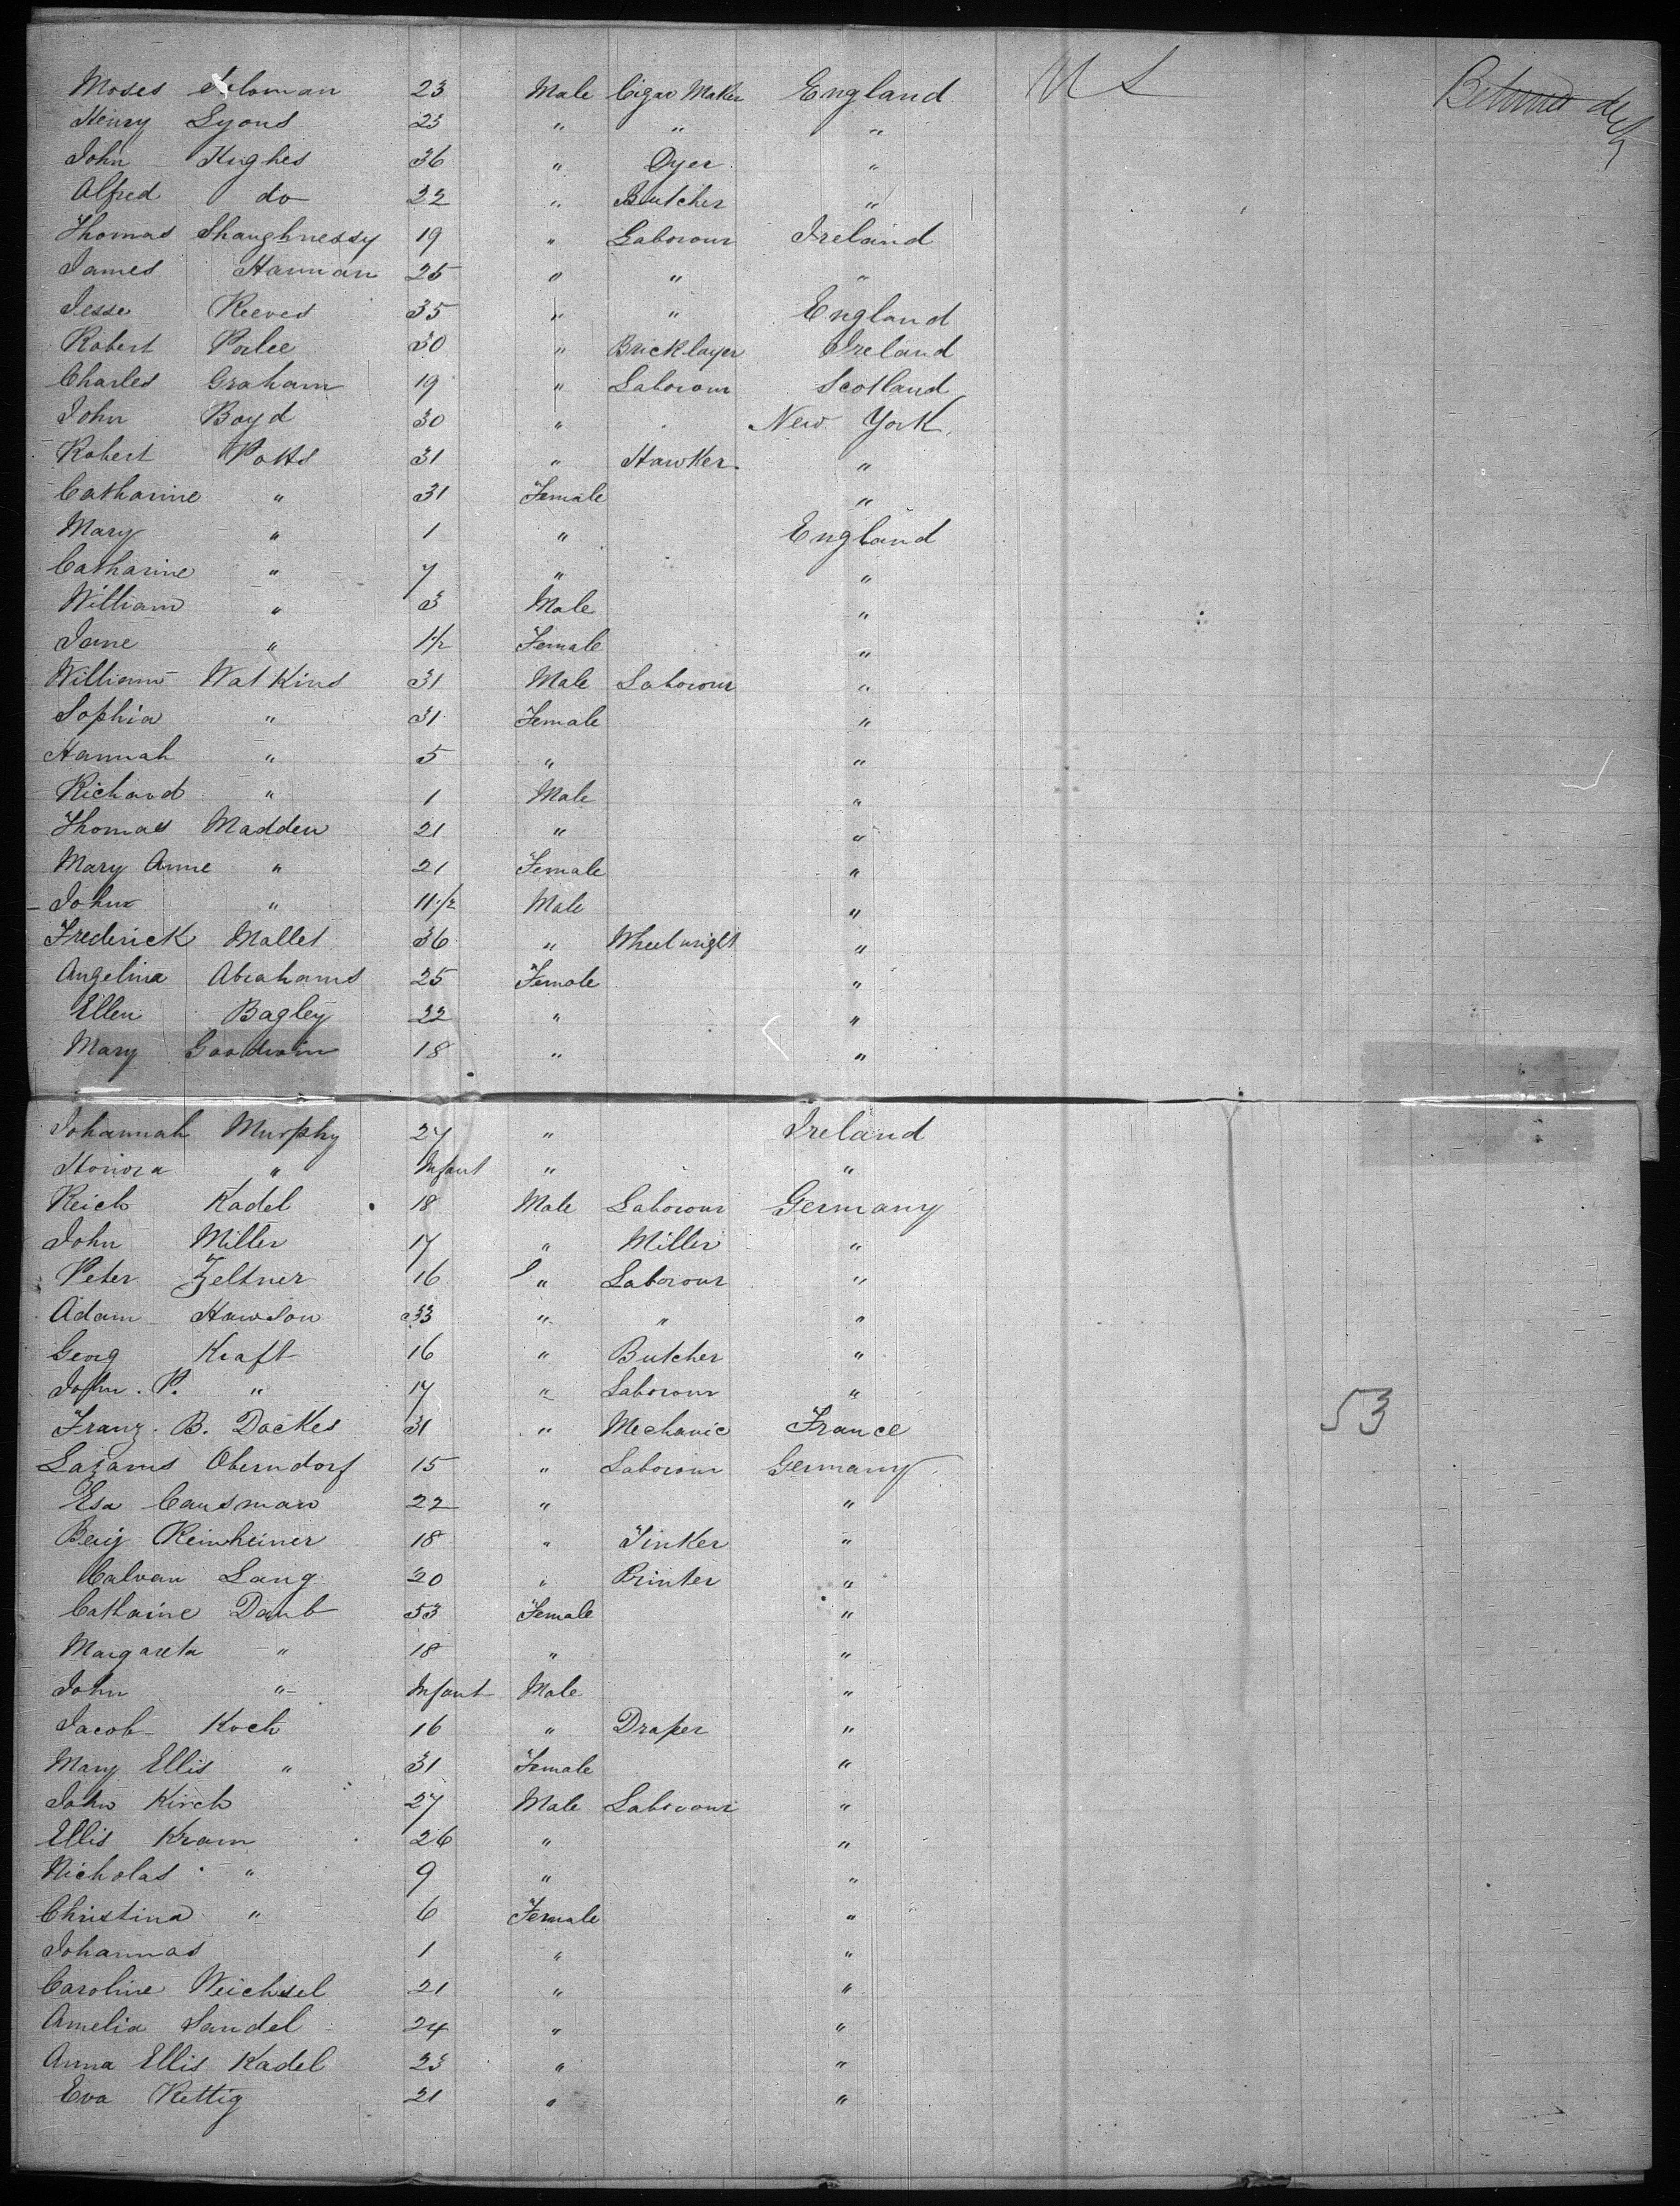 Moses Soloman 23 Male Cigar Maker England U S
Henry Lyons 23 " " "
John Hughes 36 " Dyer "
Alfred do 22 " Butcher "
Thomas Shaughnessy 19 " Laborour Ireland
James Hannan 25 " " "
Jesse Reeves 35 " " England
Robert 30 " Bricklayer Ireland
Charles Graham 19 " Laborour Scotland
John Boyd 30 " New York
Robert Potts 31 " Hawker "
Catharine " 31 Female "
Mary " 1 " England
Catharine " 7 " "
William " 3 Male "
Jane " 1/2 Female "
William Watkins 31 Male Laborour "
Sophia " 31 Female "
Hannah " 5 " "
Richard " 1 Male "
Thomas Madden 21 " "
Mary Anne " 21 Female "
John " 11/2 Male "
Frederick Mallet 36 " Wheelwright "
Angelina Abrahams 25 Female "
Ellen Bagley 22 " "
Mary Goodwin 18 " "
Johannah Murphy 27 " Ireland
Honora " Infant " "
Reich Kadel 18 Male Laborour Germany
John Miller 17 " Miller "
Peter Zeltner 16 " Laborour "
Adam Hawson 33 " " "
Georg Kraft 16 " Butcher "
John. P. " 17 " Laborour "
Franz. B. Dackes 31 " Mechanic France 53
Lazarus Oberndorf 15 " Laborour Germany
Esa Causman 22 " "
Reinheimer 18 " Tinker "
Calvan Lang 20 " Printer "
Cathaine Daub 53 Female "
Margareta " 18 " "
John " Infant Male "
Jacob Koch 16 " Draper "
Mary Ellis " 31 Female "
John Kirch 27 Male Laborour "
Ellis Kram 26 " "
Nicholas " 9 " "
Christina " 6 Female "
Johannas 1 " "
Caroline Weichsel 21 " "
Amelia Sandel 24 " "
Anna Ellis Kadel 23 " "
Eva Rettig 21 " "